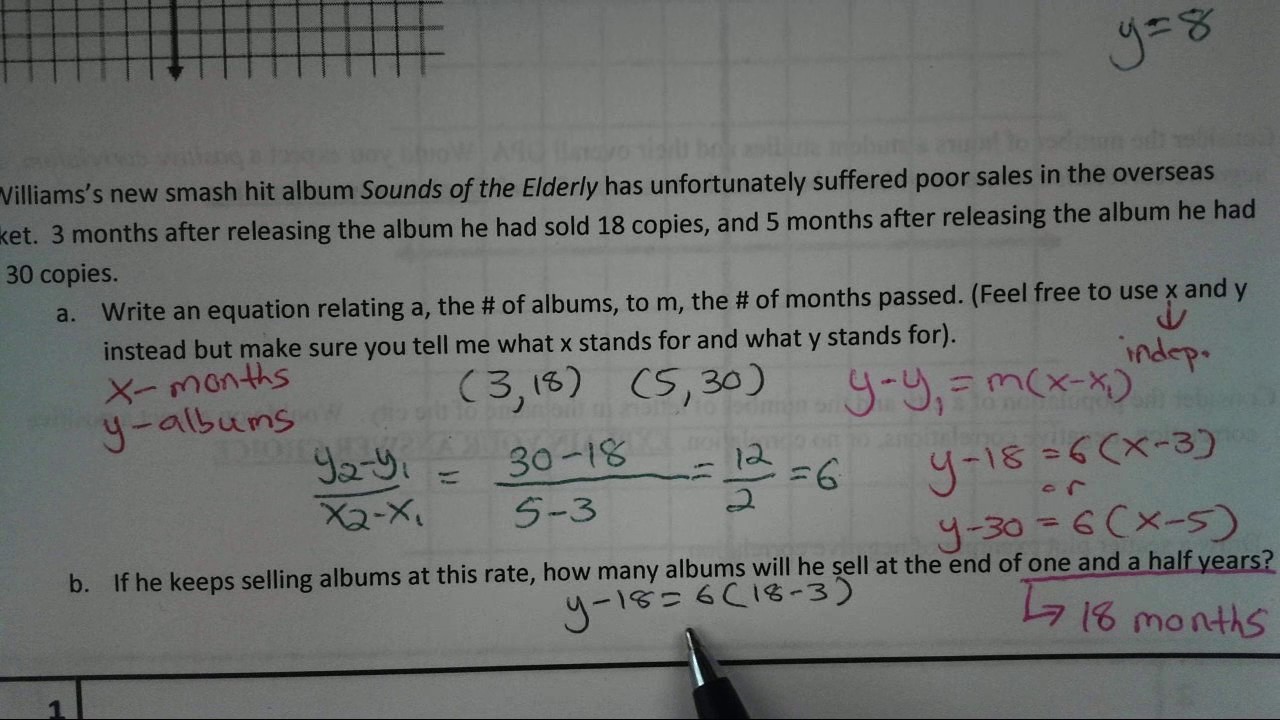 y=8
Williams's new smash hit album Sounds of the Elderly has unfortunately suffered poor sales in the overseas
ket. 3 months after releasing the album he had sold 18 copies, and 5 months after releasing the album he had
30 copies.
a. Write an equation relating a, the # of albums, to m, the # of months passed. (Feel free to use x and y
instead but make sure you tell me what x stands for and what y stands for).
indep.
x- months (3,18) (5,30) y-y₁ = m(x-x₁)
y-albums
y₂-y₁ / x₂-x₁ = 30-18 / 5-3 = 12 / 2 = 6
y-18 = 6(x-3)
or
y-30 = 6(x-5)
b. If he keeps selling albums at this rate, how many albums will he sell at the end of one and a half years?
y-18 = 6(18-3)
↳ 18 months
1